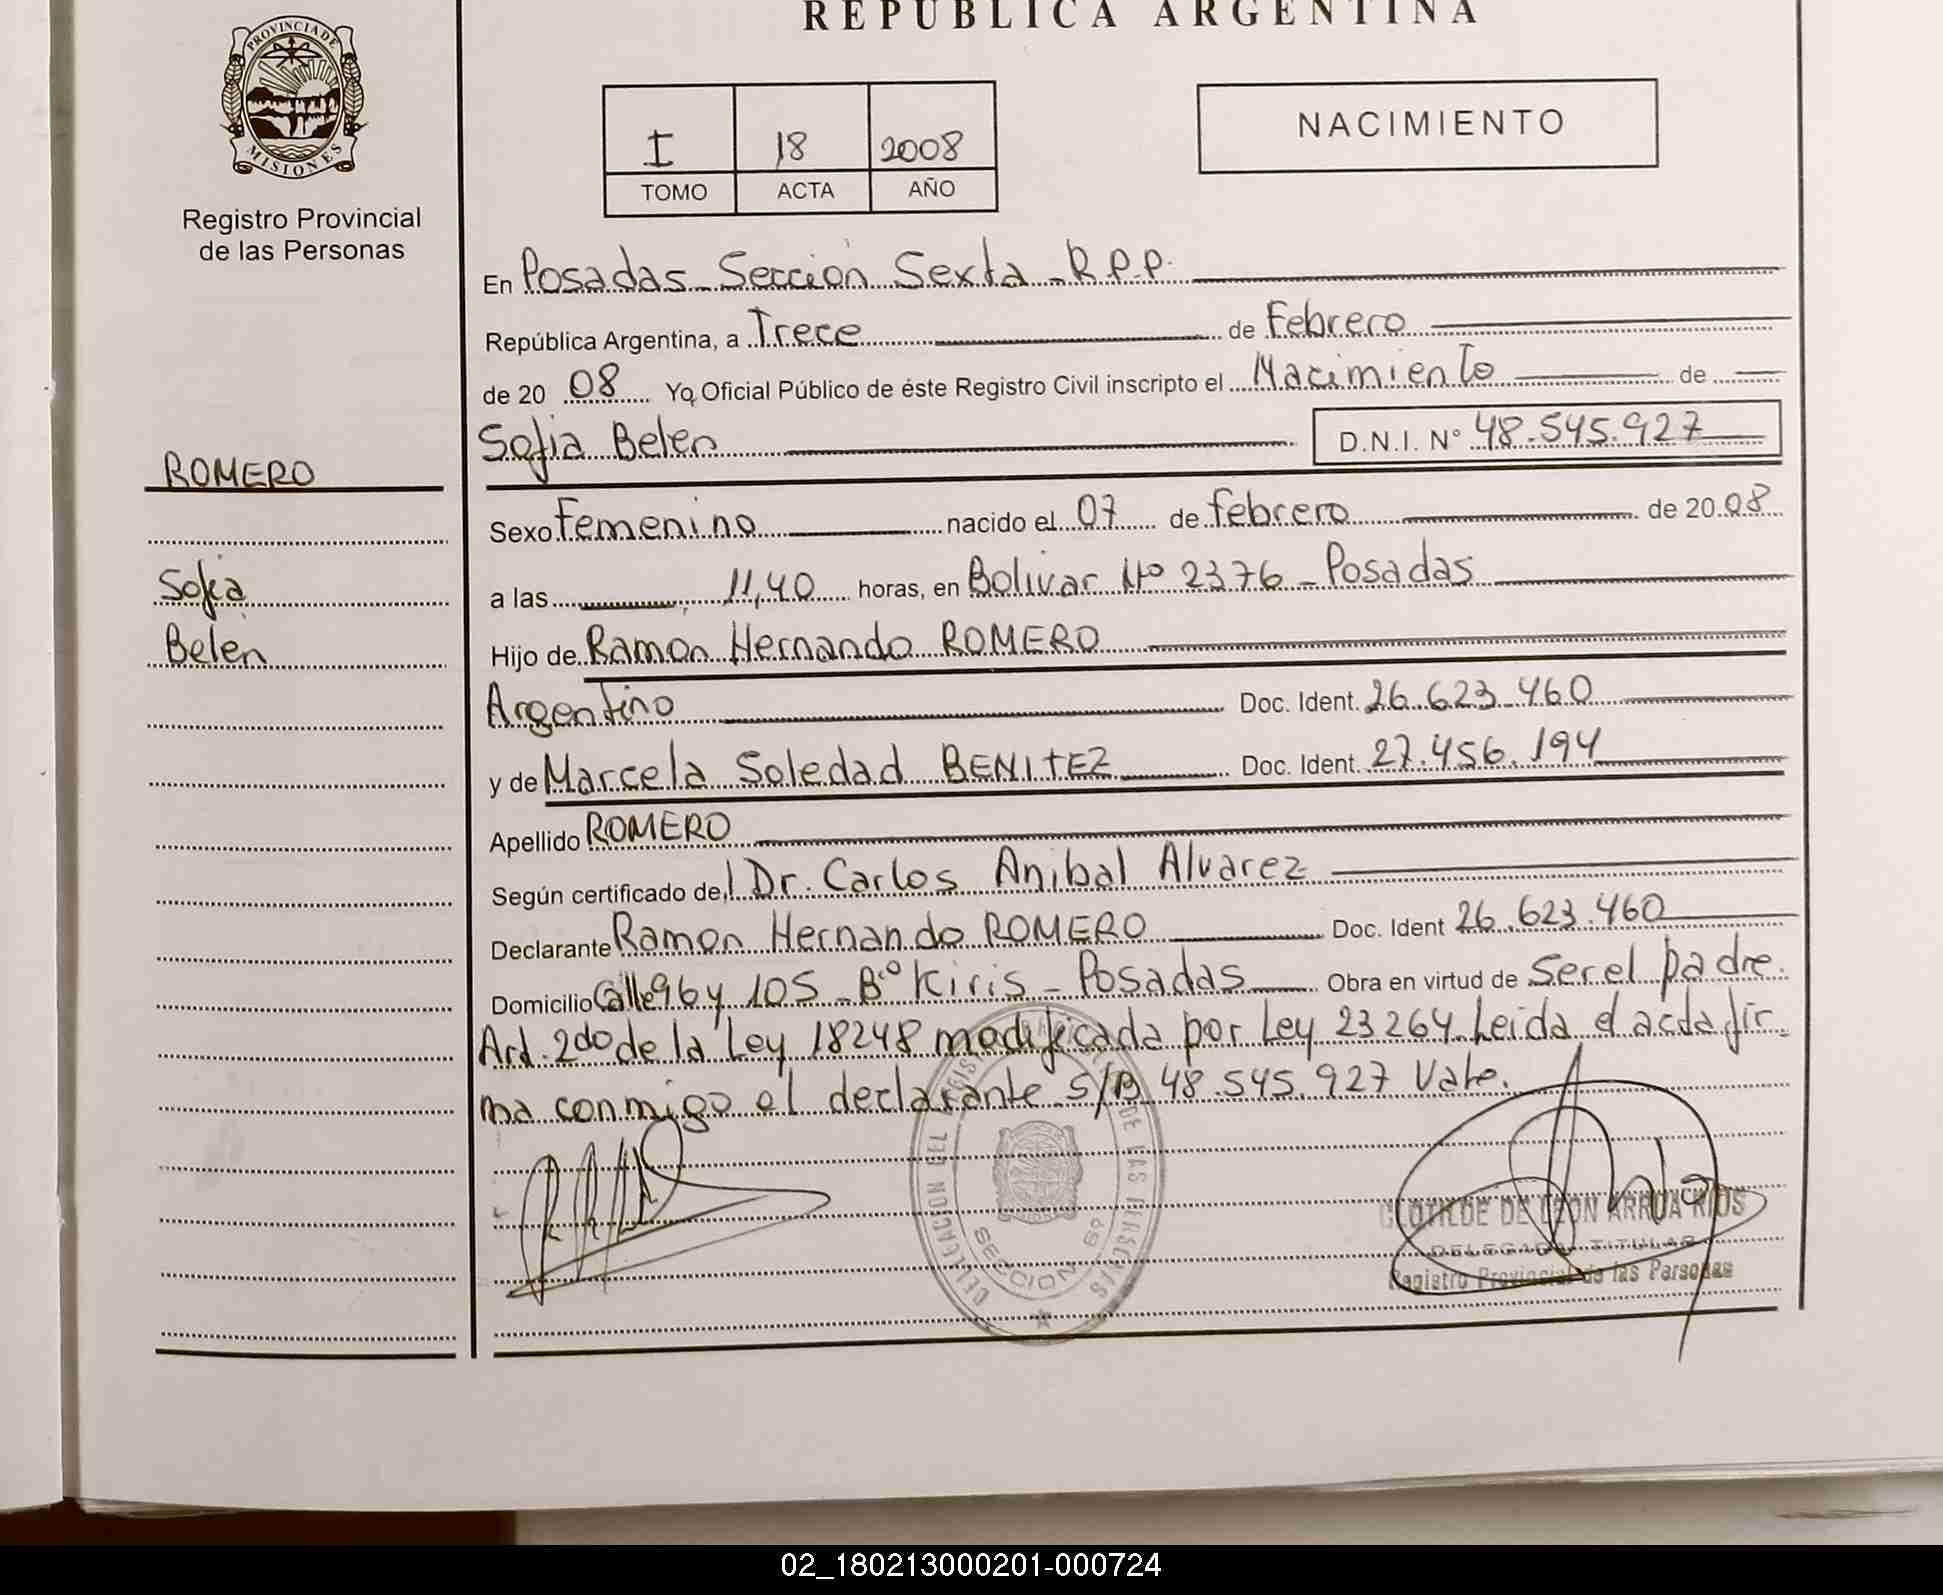 REPÚBLICA ARGENTINA
PROVINCIA DE
MISIONES
Registro Provincial
de las Personas
I 18 2008
TOMO ACTA AÑO
NACIMIENTO
En Posadas Sección Sexta - R.P.P.
República Argentina, a Trece de Febrero
de 20 08 Yo, Oficial Público de éste Registro Civil inscripto el Nacimiento de
Sofia Belen D.N.I. N° 48.545.927
ROMERO
Sexo Femenino nacido el 07 de febrero de 20 08
Sofia
a las 11,40 horas, en Bolivar Nº 2376 - Posadas
Belen
Hijo de Ramon Hernando ROMERO
Argentino Doc. Ident. 26.623.460
y de Marcela Soledad BENITEZ Doc. Ident. 27.456.194
Apellido ROMERO
Según certificado de, l Dr. Carlos Anibal Alvarez
Declarante Ramon Hernando ROMERO Doc. Ident 26.623.460
Domicilio Calle 96 y 105 - Bº Kiris - Posadas Obra en virtud de Ser el padre.
Art. 2do de la Ley 18248 modificada por Ley 23264. Leida el acta fir-
ma conmigo el declarante S/B 48.545.927 Vale.
DELEGACION DEL REGISTRO DE LAS PERSONAS
SECCION 6º
CLOTILDE DE LEON ARRUA RIOS
DELEGADA TITULAR
Registro Provincial de las Personas
02_180213000201-000724